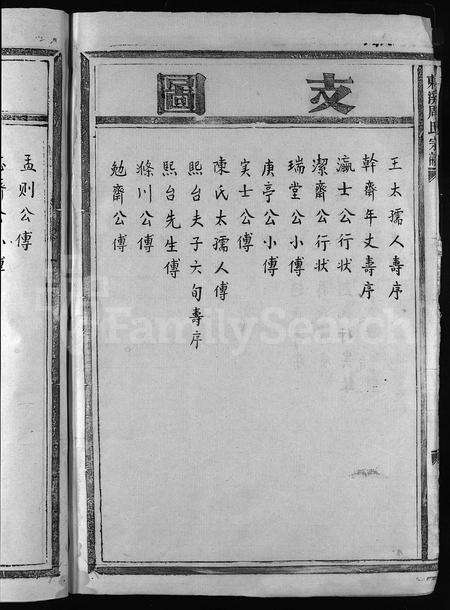 支圖
王太孺人壽序
幹齋年丈壽序
瀛士公行狀
潔齋公行狀
瑞堂公小傳
庚亭公小傳
实士公傳
陳氏太孺人傳
熙台夫子六旬壽序
熙台先生傳
滌川公傳
勉齋公傳
孟则公傳
FamilySearch